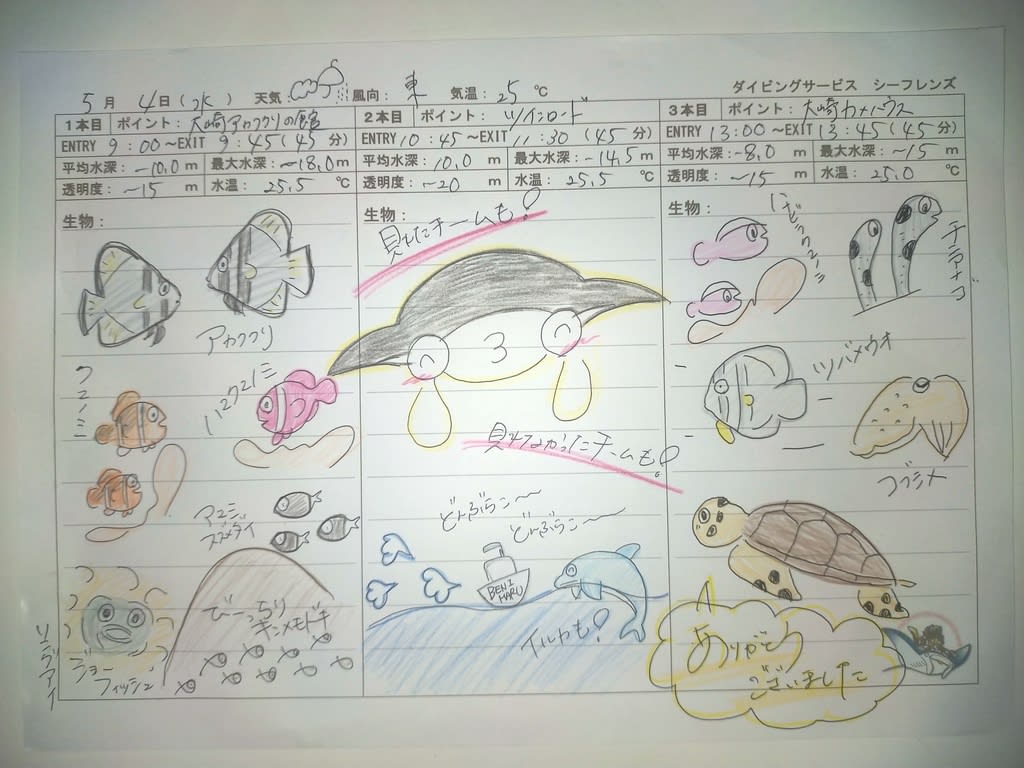 5月 4日(水) 天気: 風向: 東 気温: 25 ℃
ダイビングサービス シーフレンズ
1本目 ポイント: 大崎アカククリの館
ENTRY 9:00~EXIT 9:45(45分)
平均水深: -10.0 m 最大水深: ~-18.0 m
透明度: ~15 m 水温: 25.5 ℃
生物:
アカククリ
クマノミ
ハマクマノミ
アマミスズメダイ
びーっちり
キンメモドキ
ジョー
フィッシュ
2本目 ポイント: ツインロード
ENTRY 10:45~EXIT 11:30(45分)
平均水深: 10.0 m 最大水深: -14.5 m
透明度: ~20 m 水温: 25.5 ℃
生物:
見れたチームも!
3
見れなかったチームも!
どんぶらこ~~
どんぶらこ~~
BENI
MARU
イルカも!
3本目 ポイント: 大崎カメハウス
ENTRY 13:00~EXIT 13:45(45分)
平均水深: -8.0 m 最大水深: ~15 m
透明度: ~15 m 水温: 25.0 ℃
生物:
チンアナゴ
ツバメウオ
コブシメ
ありがとう
ございました